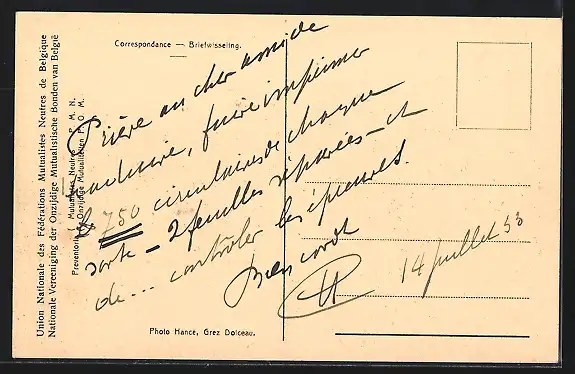 Union Nationale des Fédérations Mutualistes Neutres de Belgique
Nationale Vereeniging der Onzijdige Mutualistische Bonden van België
Mutualistes Neutres P. M. N.
Onzijdige Mutualiteiten P. O. M.
Correspondance — Briefwisseling.
Prière au cher amide
faire imprimer
les 750 circulaires de chaque
sorte – 2 feuilles séparées – et
de... contrôler les épreuves.
Bien cordt
14 juillet 53
Photo Hance, Grez Doiceau.